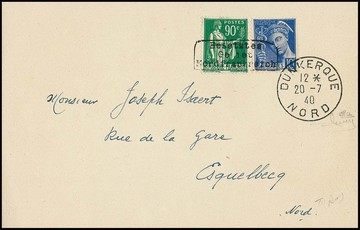 POSTES
90c
Besetztes
Gebiet
Nordfrankreich
DUNKERQUE
12 *
20 -7
40
NORD
Monsieur Joseph Isaert
Rue de la Gare
Esquelbecq
Nord.